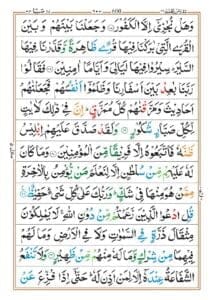 وَهَلْ نُجٰزِیْۤ اِلَّا الْكَفُوْرَ ۝ وَجَعَلْنَا بَیْنَهُمْ وَ بَیْنَ
الْقُرَی الَّتِیْ بٰرَكْنَا فِیْهَا قُرًی ظَاهِرَةً وَّقَدَّرْنَا فِیْهَا
السَّیْرَ ؕ سِیْرُوْا فِیْهَا لَیَالِیَ وَاَیَّامًا اٰمِنِیْنَ ۝ فَقَالُوْا
رَبَّنَا بٰعِدْ بَیْنَ اَسْفَارِنَا وَظَلَمُوْۤا اَنْفُسَهُمْ فَجَعَلْنٰهُمْ
اَحَادِیْثَ وَمَزَّقْنٰهُمْ كُلَّ مُمَزَّقٍ ؕ اِنَّ فِیْ ذٰلِكَ لَاٰیٰتٍ
لِّكُلِّ صَبَّارٍ شَكُوْرٍ ۝ وَلَقَدْ صَدَّقَ عَلَیْهِمْ اِبْلِیْسُ
ظَنَّهٗ فَاتَّبَعُوْهُ اِلَّا فَرِیْقًا مِّنَ الْمُؤْمِنِیْنَ ۝ وَمَا كَانَ
لَهٗ عَلَیْهِمْ مِّنْ سُلْطٰنٍ اِلَّا لِنَعْلَمَ مَنْ یُّؤْمِنُ بِالْاٰخِرَةِ
مِمَّنْ هُوَ مِنْهَا فِیْ شَكٍّ ؕ وَرَبُّكَ عَلٰی كُلِّ شَیْءٍ حَفِیْظٌ ۝
قُلِ ادْعُوا الَّذِیْنَ زَعَمْتُمْ مِّنْ دُوْنِ اللّٰهِ ۚ لَا یَمْلِكُوْنَ
مِثْقَالَ ذَرَّةٍ فِی السَّمٰوٰتِ وَلَا فِی الْاَرْضِ وَمَا لَهُمْ
فِیْهِمَا مِنْ شِرْكٍ وَّمَا لَهٗ مِنْهُمْ مِّنْ ظَهِیْرٍ ۝ وَلَا تَنْفَعُ
الشَّفَاعَةُ عِنْدَهٗۤ اِلَّا لِمَنْ اَذِنَ لَهٗ ؕ حَتّٰۤی اِذَا فُزِّعَ عَنْ